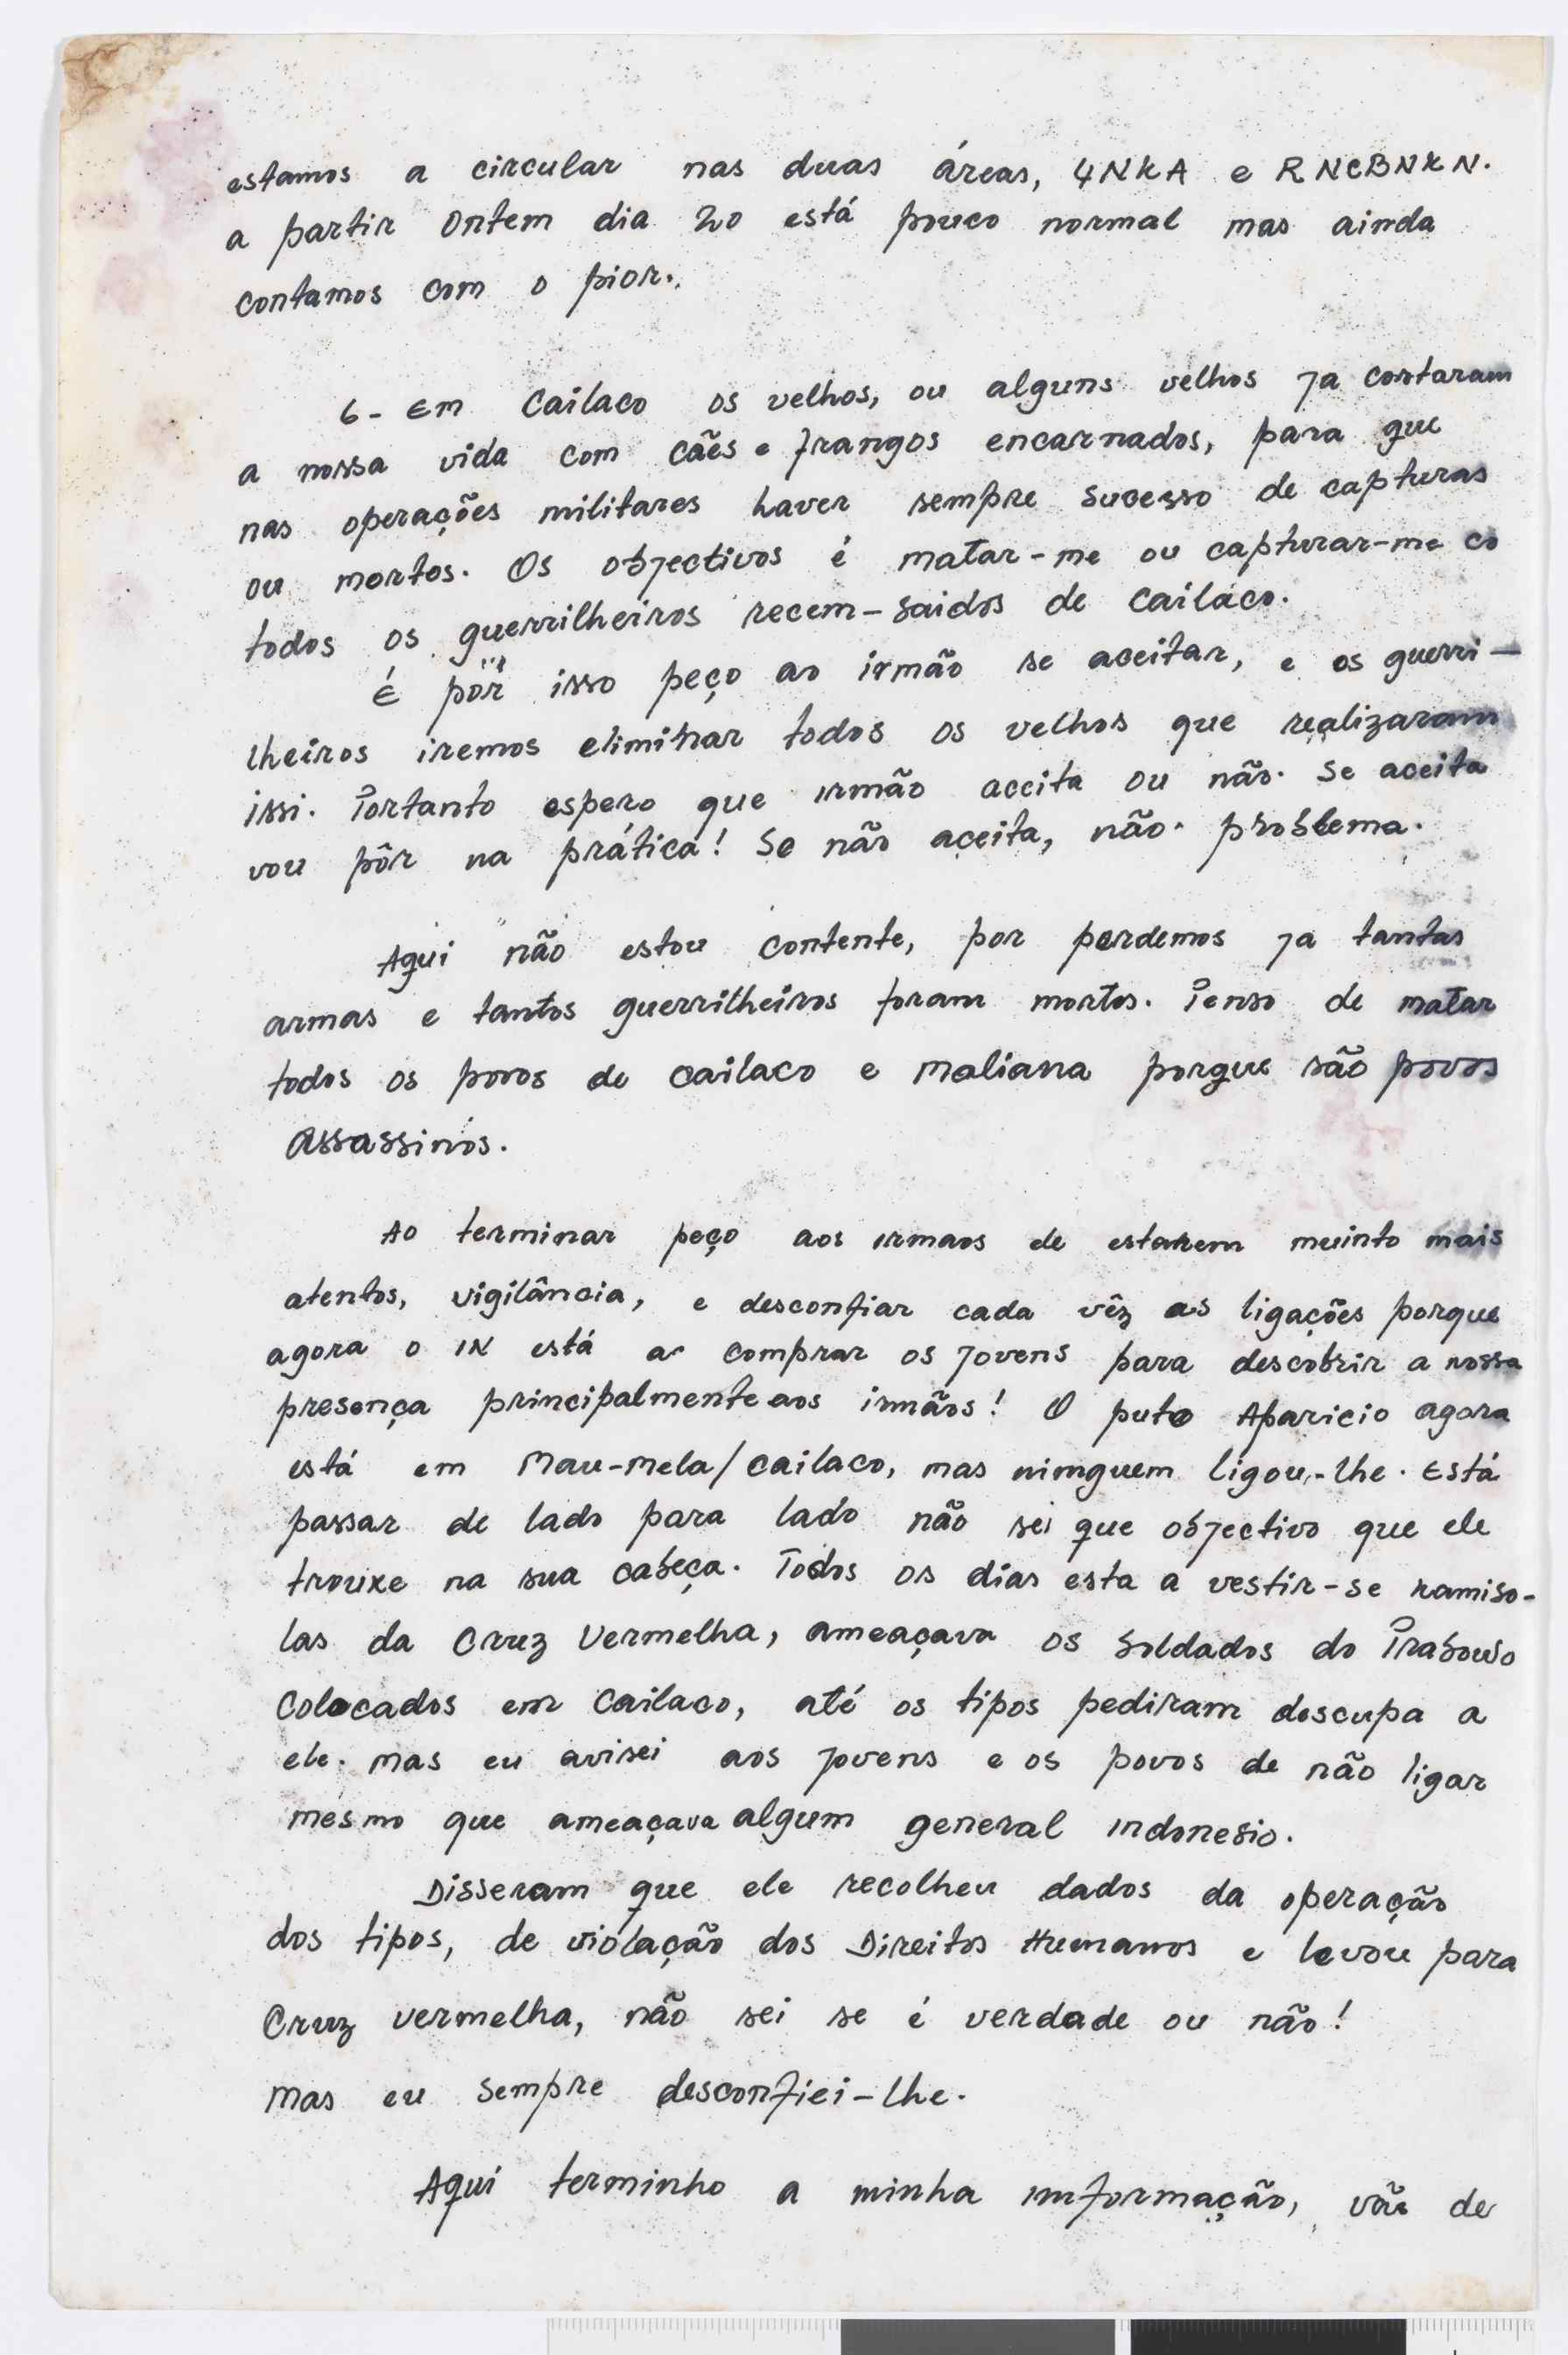 estamos a circular nas duas áreas, 4NKA e RNCBNKN.
a partir Ontem dia 20 está pouco normal mas ainda
contamos com o pior.
6- Em Cailaco os velhos, ou alguns velhos ja cortaram
a nossa vida com cães e frangos encarnados, para que
nas operações militares haver sempre sucesso de capturas
ou mortos. Os objectivos é matar-me ou capturar-me co
todos os guerrilheiros recem-saidos de Cailáco.
É pôr isso peço ao irmão se aceitar, e os guerri-
lheiros iremos eliminar todos os velhos que realizaram
issi. Portanto espero que irmão aceita ou não. Se aceita
vou pôr na prática! Se não aceita, não. problema.
Aqui não estou contente, por perdemos ja tantas
armas e tantos guerrilheiros foram mortos. Penso de matar
todos os povos de cailaco e Maliana porque são povos
Assassinos.
Ao terminar peço aos irmaos de estarem muinto mais
atentos, vigilância, e desconfiar cada vêz as ligações porque
agora o IN está a comprar os jovens para descobrir a nossa
presença principalmente aos irmãos! O puto Aparicio agora
está em Mau-mela/cailaco, mas nimguem ligou-lhe. Está
passar de lado para lado não sei que objectivo que ele
trouxe na sua cabeça. Todos os dias esta a vestir-se kamiso-
las da Cruz Vermelha, ameaçava os Soldados do Prabowo
colocados em Cailaco, até os tipos pediram descupa a
ele. mas eu avisei aos jovens e os povos de não ligar
mesmo que ameaçava algum general indonesio.
Disseram que ele recolheu dados da operação
dos tipos, de violação dos Direitos Humanos e levou para
Cruz vermelha, não sei se é verdade ou não!
Mas eu sempre desconfiei-lhe.
Aqui terminho a minha imformação, vão de